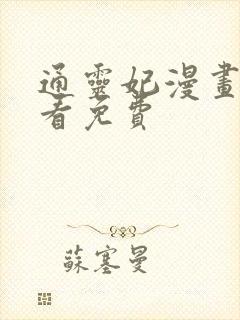 通靈妃漫畫
看免費
蘇塞曼